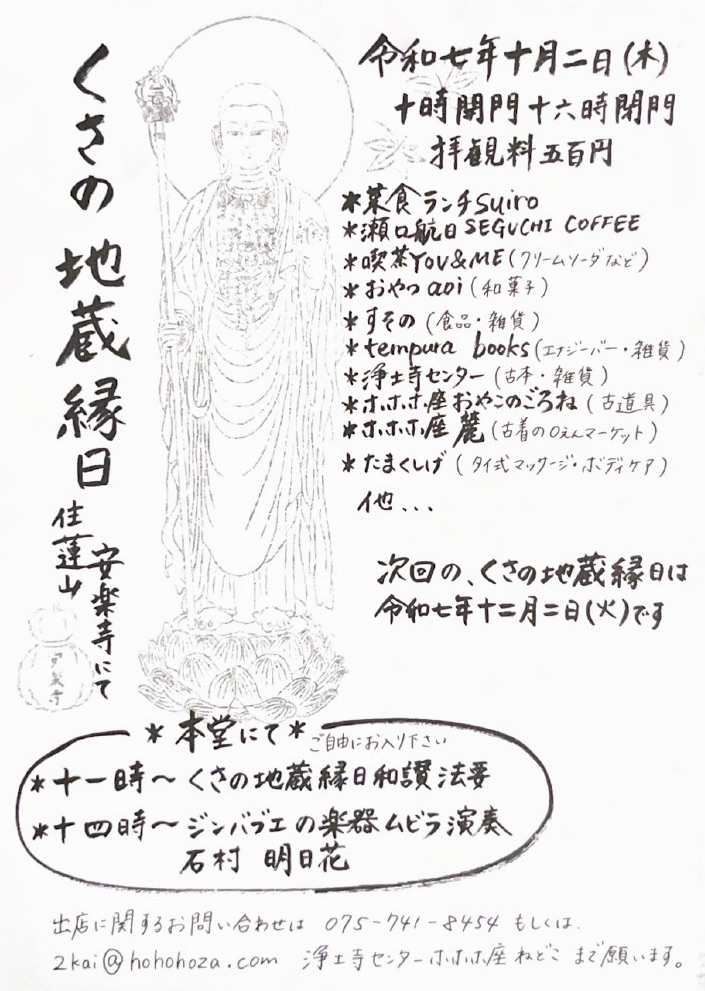 くさの地蔵縁日
住蓮山
安楽寺にて
令和七年十月二日(木)
十時開門十六時閉門
拝観料五百円
*菜食ランチSuiro
*瀬口航日SEGUCHI COFFEE
*喫茶YOU&ME(クリームソーダなど)
*おやつaoi(和菓子)
*すその(食品・雑貨)
*tempura books(エナジーバー・雑貨)
*浄土寺センター(古本・雑貨)
*ホホホ座おやこのごろね(古道具)
*ホホホ座 麓(古着の0えんマーケット)
*たまくしげ(タイ式マッサージ・ボディケア)
他...
次回の、くさの地蔵縁日は
令和七年十二月二日(火)です
*本堂にて*ご自由にお入り下さい
*十一時～くさの地蔵縁日和讃法要
*十四時～ジンバブエの楽器ムビラ演奏
石村 明日花
出店に関するお問い合わせは 075-741-8454 もしくは、
2kai@hohohoza.com 浄土寺センターホホホ座ねどこ まで願います。